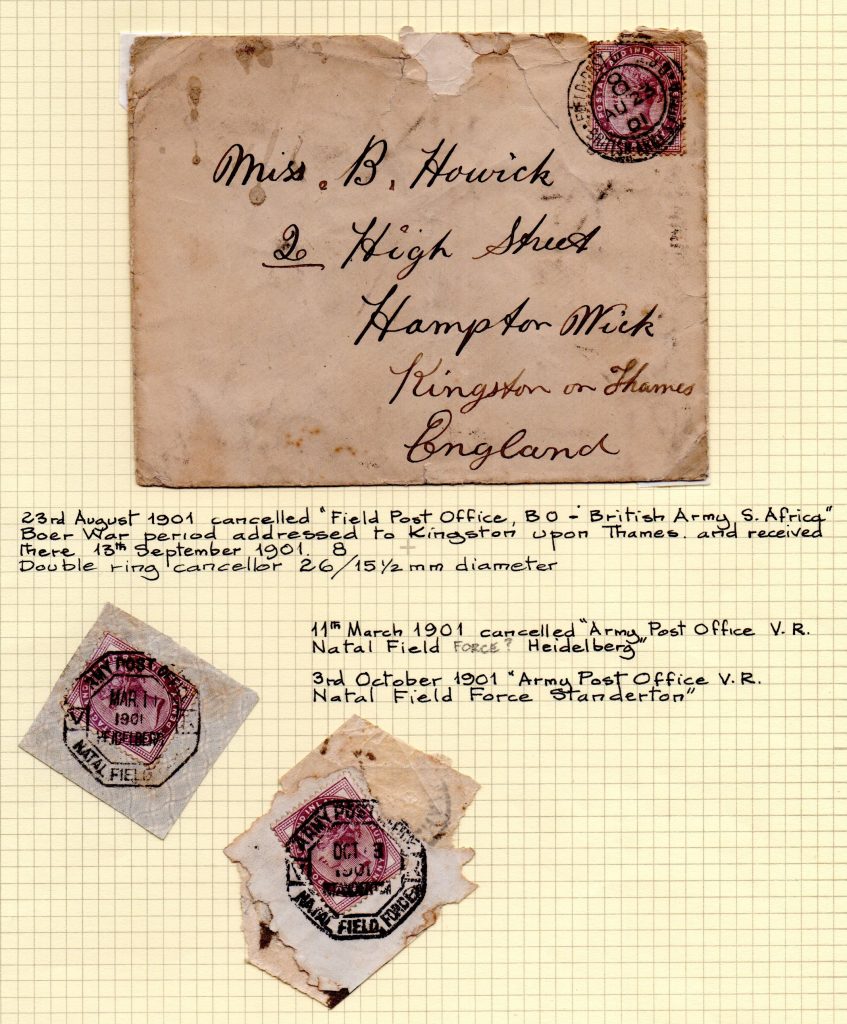 FIELD POST
BRITISH ARMY S.
AU
01
POSTAGE AND INLAND
Miss. B. Howick
2 High Street
Hampton Wick
Kingston on Thames
England
23rd August 1901 cancelled "Field Post Office, BO - British Army S. Africa"
Boer War period addressed to Kingston upon Thames. and received
there 13th September 1901. 8
Double ring cancellor 26/15½ mm diameter
11th March 1901 cancelled "Army Post Office V.R.
Natal Field FORCE? Heidelberg"
3rd October 1901 "Army Post Office V.R.
Natal Field Force Standerton"
ARMY POST OFFICE
MAR 11
1901
HEIDELBERG
NATAL FIELD
ARMY POST
OCT 3
1901
STANDERTON
NATAL FIELD FORCE